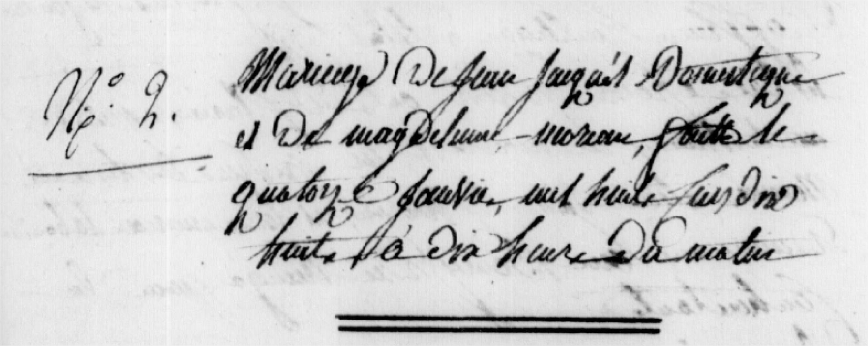 No. 2.
Mariage De Jean Jacques Domestique
et De magdelaine moreau, faitte le
quatorze Janvier, mil huit Cens dix
huit, à dix heure Du matin